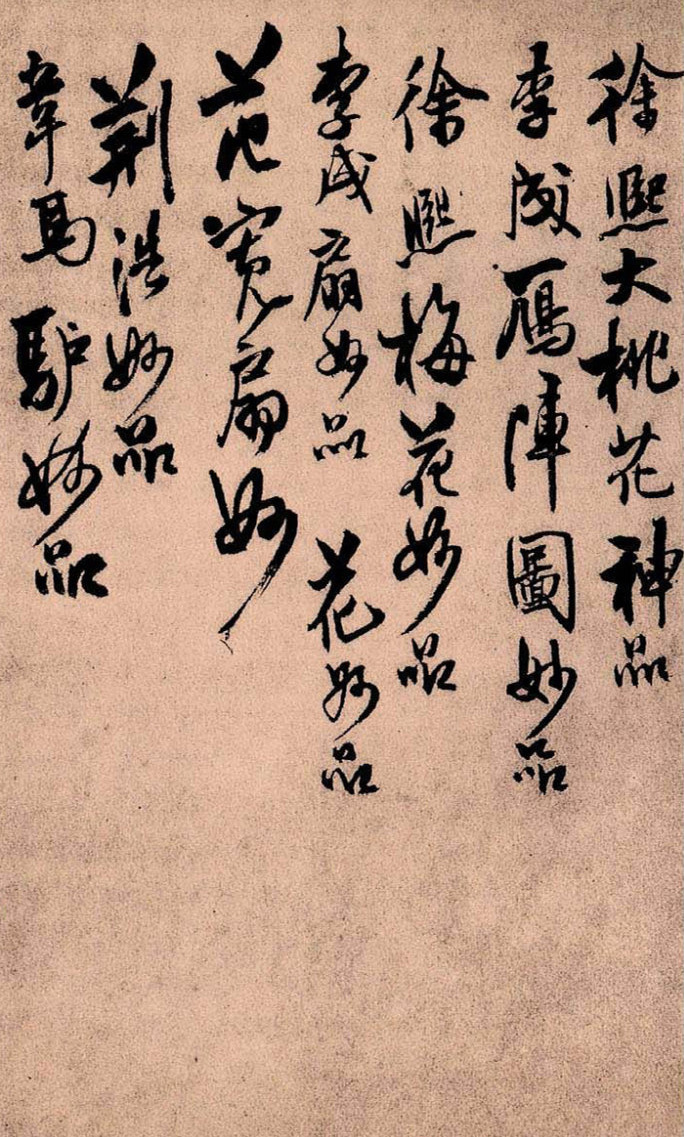 徐熙大桃花神品
李成雁陣圖妙品
徐熙梅花妙品
李成扇妙品 花妙品
范寬扇妙
荆浩妙品
韋馬驢妙品